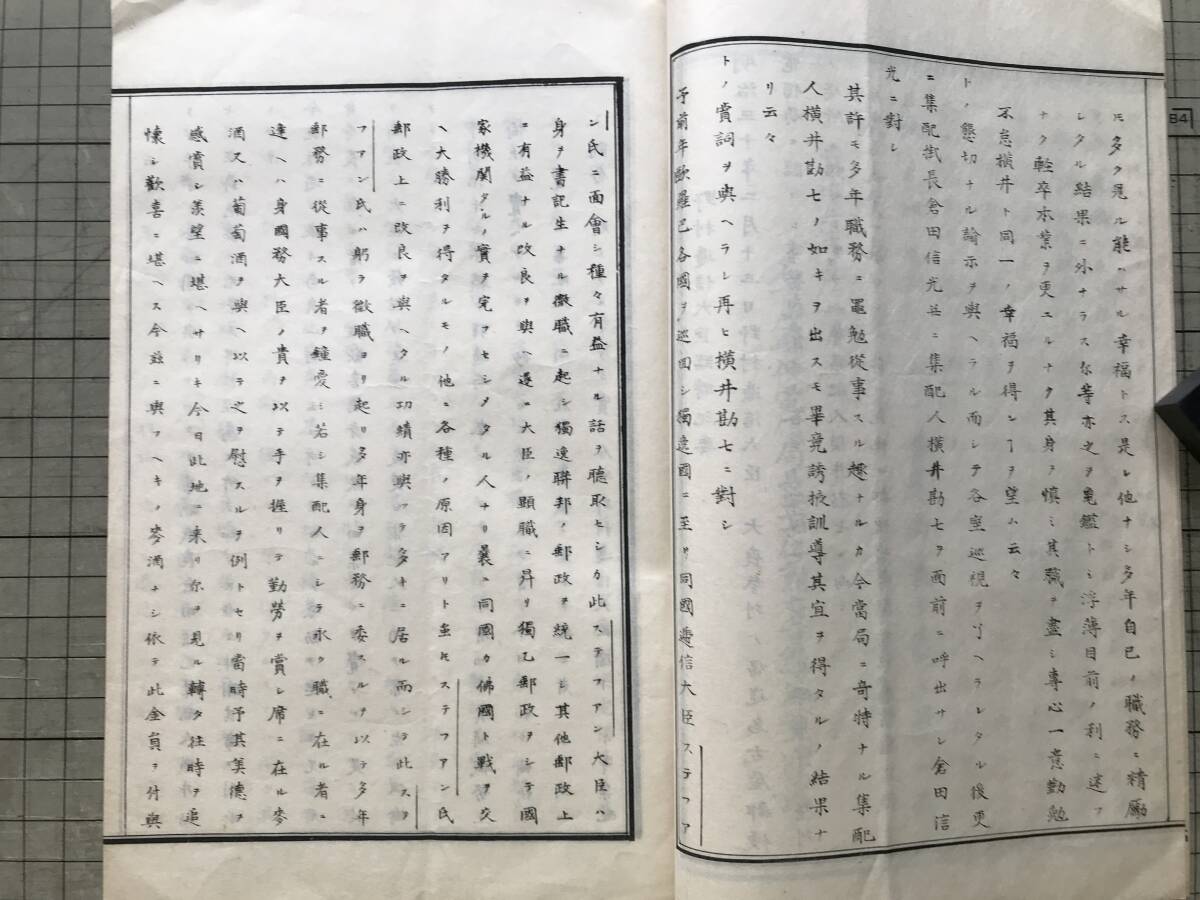 モタク見ル能ハサル幸福トス是レ他ナシ多年自己ノ職務ニ精勵
シタル結果ニ外ナラス你等亦之ヲ亀鑑トシ浮薄目前ノ利ニ迷フ
ナク輕卒本業ヲ更ユルナク其身ヲ慎ミ其職ヲ盡シ専心一意勤勉
不怠横井ト同一ノ幸福ヲ得ンヿヲ望ム云々
トノ懇切ナル諭示ヲ與ヘラル而シテ各室巡視ヲ了ヘラレタル後更
ニ集配街長倉田信光並ニ集配人横井勘七ヲ面前ニ呼出サレ倉田信
光ニ對シ
其許モ多年職務ニ黽勉從事スル趣ナルカ今當局ニ奇特ナル集配
人横井勘七ノ如キヲ出スモ畢竟誘掖訓導其宜ヲ得タルノ結果ナ
リ云々
トノ賞詞ヲ與ヘラレ再ヒ横井勘七ニ對シ
予前年歐羅巴各國ヲ巡回シ獨逸國ニ至リ同國遞信大臣ステフア
ン氏ニ面會シ種々有益ナル話ヲ聴取セシカ此ステフアン大臣ハ
身ヲ書記生ナル微職ニ起シ獨逸聯邦ノ郵政ヲ統一シ其他郵政上
ニ有益ナル改良ヲ與ヘ遂ニ大臣ノ顯職ニ昇リ獨乙郵政ヲシテ國
家機関タルノ實ヲ完フセシメタル人ナリ曩ニ同國カ佛國ト戰ヲ交
ヘ大勝利ヲ得タルモノ他ニ各種ノ原因アリト雖モステフアン氏
郵政上ニ改良ヲ與ヘタル功績亦與フラ多キニ居ル而シテ此ステ
フアン氏ハ躬ラ微職ヨリ起リ多年身ヲ郵務ニ委スルヲ以テ多年
郵務ニ從事スル者ヲ鐘愛シ若シ集配人ニシテ永ク職ニ在ル者ニ
逢ヘハ身國務大臣ノ貴ヲ以テ手ヲ握リテ勤勞ヲ賞シ席ニ在ル麥
酒又ハ葡萄酒ヲ與ヘ以テ之ヲ慰スルヲ例トセリ當時予其美德ヲ
感賞シ羨望ニ堪ヘサリキ今日此地ニ来リ你ヲ見ル轉タ往時ヲ追
懐シ歡喜ニ堪ヘス今茲ニ與フヘキノ麥酒ナシ依テ此金員ヲ付與